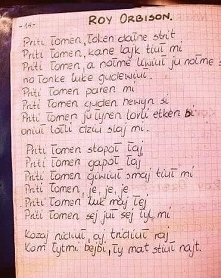 -14-
ROY ORBISON.
Priti Łomen, Łoken dałne strit
Priti Łomen, kane łajk tiuł mi
Priti Łomen, a nołme liwiuł ju nołme s
no łonke luke gudewiuł.
Priti Łomen paren mi
Priti Łomen guden newyn si
Priti Łomen ju łynen lorli etken bi
oniuł łotli dziuł slaj mi.
Priti Łomen stapoł łaj
Priti Łomen gapoł łaj
Priti Łomen giwiuł smaj tiuł mi
Priti Łomen, je, je, je
Priti Łomen luk maj łej
Priti Łomen sej juł sej łyl mi
Kozaj nidiuł, aj tridiuł raj
Kom łytmi bejbi, by mat stiuł najt.